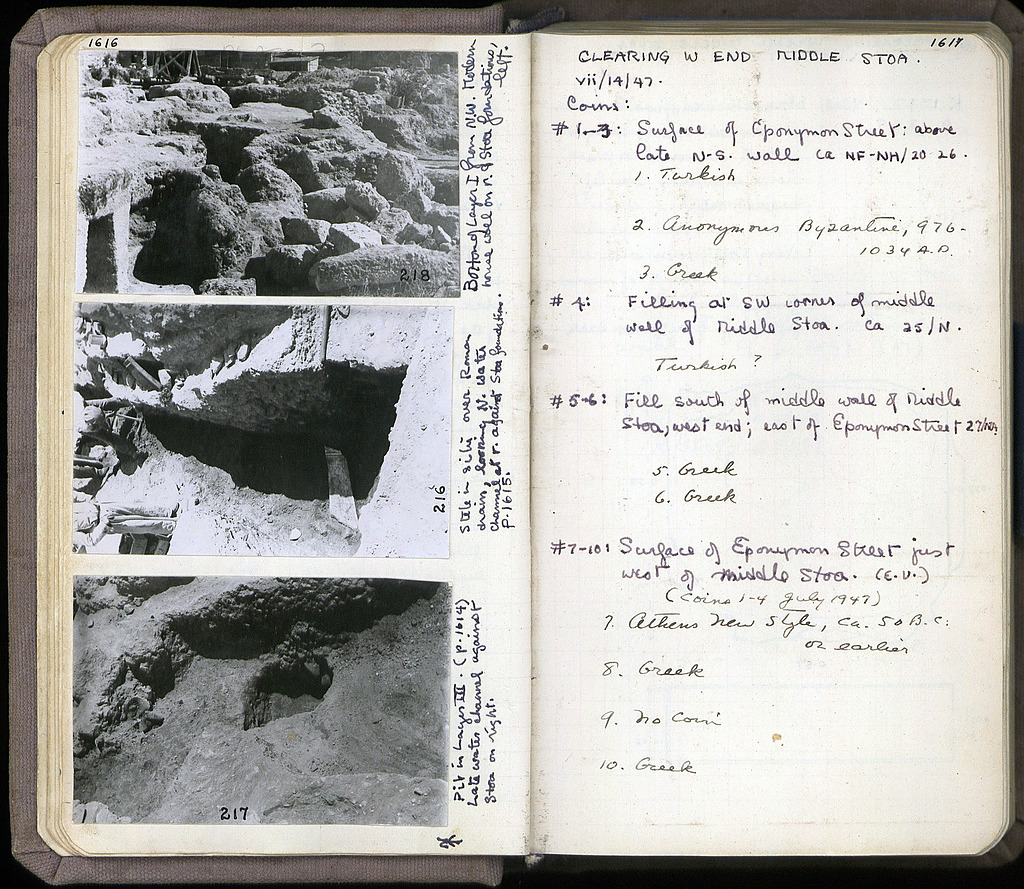 1616
218
Bottom of Layer I from NW. Modern
house wall on r. of Stoa foundations,
left.
216
Stele in situ over Roman
drain, looking N. Water
channel at r. against Stoa foundations.
P. 1615.
217
Pit in Layer III. (p. 1614)
Late water channel against
Stoa on right.
1617
CLEARING W END MIDDLE STOA.
vii/14/47.
Coins:
#1-3: Surface of Eponymon Street: above
late N-S. wall ca NF-NH/20-26.
1. Turkish
2. Anonymous Byzantine, 976-
1034 A.D.
3. Greek
#4: Filling at SW corner of middle
wall of Middle Stoa. ca 25/N.
Turkish?
#5-6: Fill south of middle wall of Middle
Stoa, west end; east of Eponymon Street
5. Greek
6. Greek
#7-10: Surface of Eponymon Street just
west of Middle Stoa. (E.V.)
(Coins 1-4 July 1947)
7. Athens New Style, ca. 50 B.C.
or earlier
8. Greek
9. No Coin
10. Greek